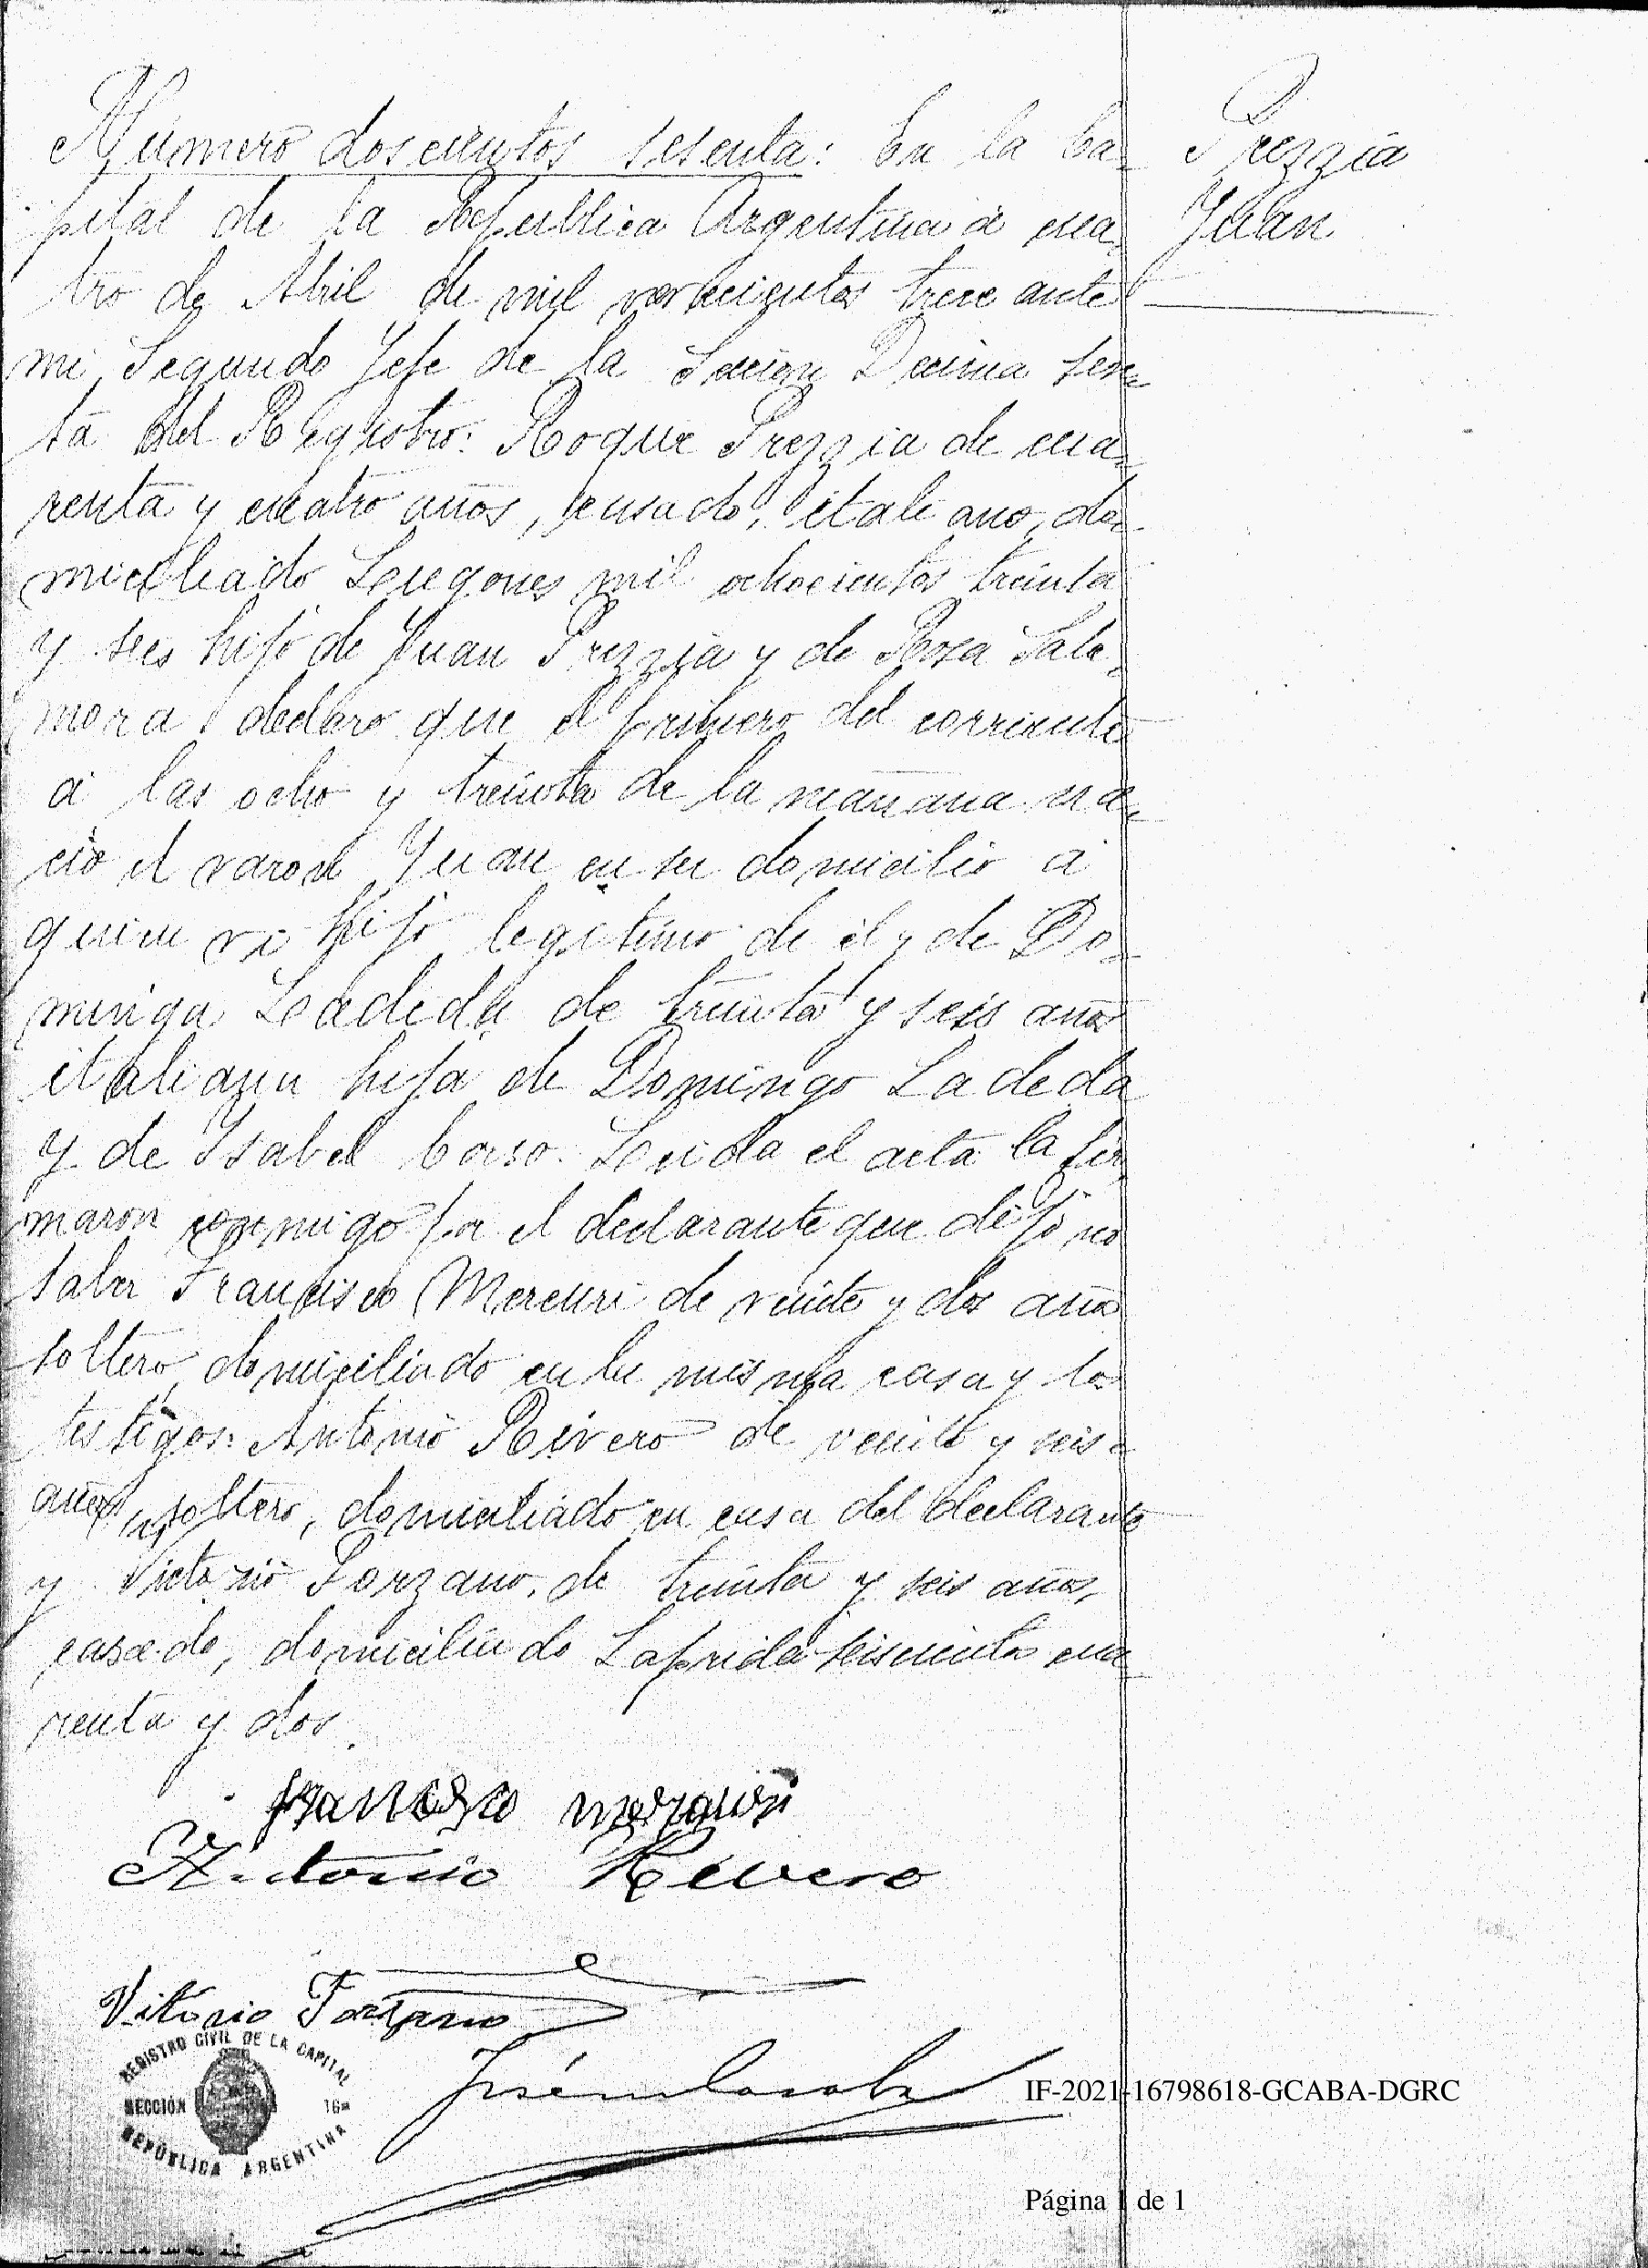 Número doscientos sesenta: En la Ca-
pital de la República Argentina á cua-
tro de Abril de mil novecientos trece ante
mi Segundo Jefe de la Sección Decima sex-
ta del Registro: Roque Prezzia de cua-
renta y cuatro años, casado, italiano, do-
miciliado Lugones mil ochocientos treinta
y seis hijo de Juan Prezzia y de Rosa Sala-
mona declaro que el primero del corriente
á las ocho y treinta de la mañana na-
ció el varon Juan en su domicilio á
quien vi hijo legitimo de él y de Do-
minga Ladeda de treinta y seis años
italiana hija de Domingo Ladeda
y de Ysabel Corso. Leida el acta la fir-
maron conmigo por el declarante que dijo no
saber Francisco Mercuri de veinte y dos años
soltero domiciliado en la misma casa y los
testigos: Antonio Rivero de veinte y seis
años, soltero, domiciliado en casa del declarante
y Victorio Forzano, de treinta y seis años,
casado, domiciliado Laprida seiscientos cua-
renta y dos.
Prezzia
Juan
Francisco Mercuri
Antonio Rivero
Vitorio Forzano
REGISTRO CIVIL DE LA CAPITAL
SECCIÓN 16a
REPÚBLICA ARGENTINA
IF-2021-16798618-GCABA-DGRC
Página 1 de 1